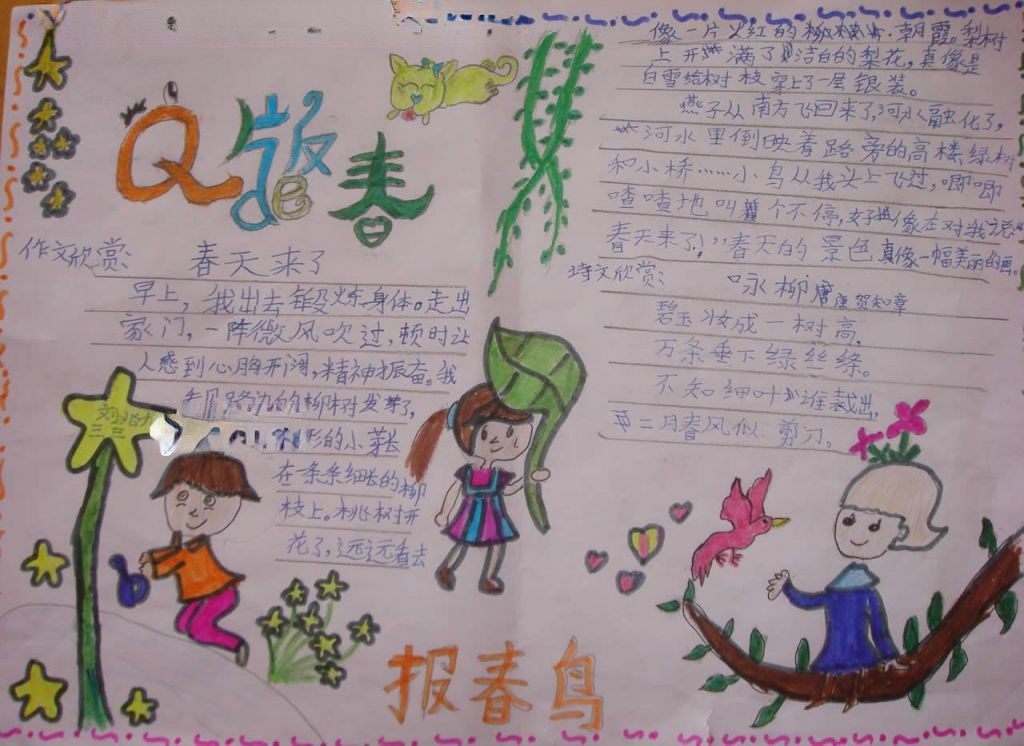 Q版de春
作文欣赏:
春天来了
早上,我出去锻炼身体。走出
家门,一阵微风吹过,顿时让
人感到心胸开阔,精神振奋。我
路边的柳树发芽了,
形的小芽长
在一条条细长的柳
枝上。桃树开
花了,远远看去
像一片火红的朝霞。梨树
上开满了洁白的梨花,真像是
白雪给树枝穿上了一层银装。
燕子从南方飞回来了,河水融化了,
河水里倒映着路旁的高楼、绿树
和小桥……小鸟从我头上飞过,唧唧
喳喳地叫个不停,好像在对我说:“
春天来了!”春天的景色真像一幅美丽的画。
诗文欣赏:
咏柳 唐 贺知章
碧玉妆成一树高,
万条垂下绿丝绦。
不知细叶谁裁出,
二月春风似剪刀。
三二
报春鸟